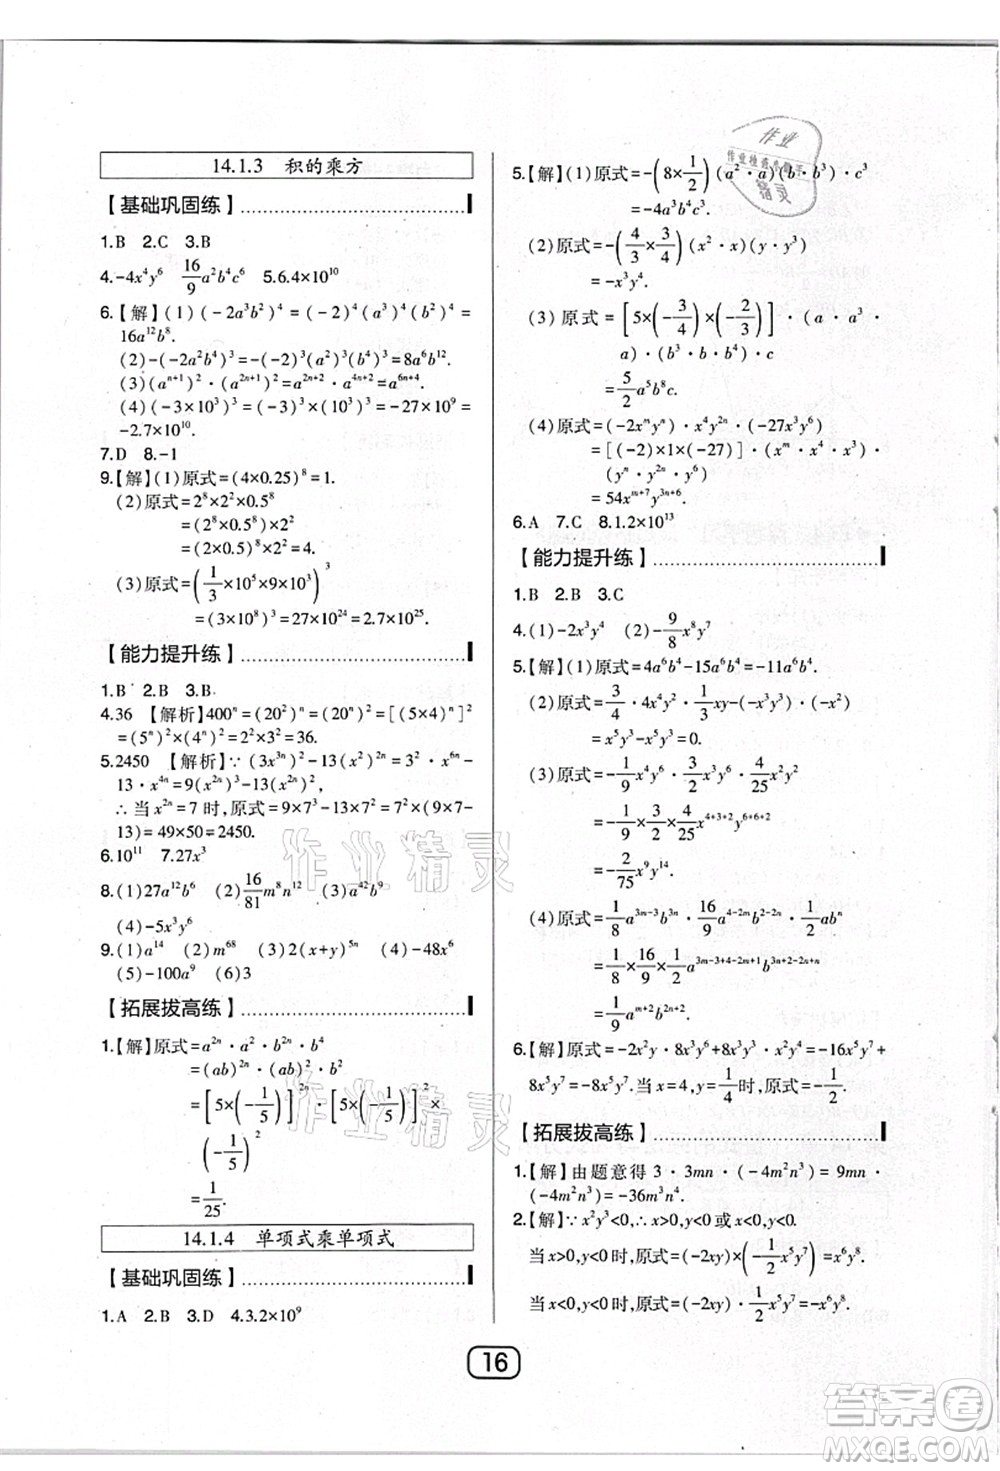 14.1.3 积的乘方
【基础巩固练】
1.B 2.C 3.B
4.-4x⁴y⁶ 16/9 a²b⁴c⁶ 5.6.4×10¹⁰
6.【解】(1)(-2a³b²)⁴=(-2)⁴(a³)⁴(b²)⁴=
16a¹²b⁸.
(2)-(-2a²b⁴)³=-(-2)³(a²)³(b⁴)³=8a⁶b¹².
(3)(aⁿ⁺¹)²·(a²ⁿ⁺¹)²=a²ⁿ⁺²·a⁴ⁿ⁺²=a⁶ⁿ⁺⁴.
(4)(-3×10³)³=(-3)³×(10³)³=-27×10⁹=
-2.7×10¹⁰.
7.D 8.-1
9.【解】(1)原式=(4×0.25)⁸=1.
(2)原式=2⁸×2²×0.5⁸
=(2⁸×0.5⁸)×2²
=(2×0.5)⁸×2²=4.
(3)原式=(1/3×10⁵×9×10³)³
=(3×10⁸)³=27×10²⁴=2.7×10²⁵.
【能力提升练】
1.B 2.B 3.B
4.36 【解析】400ⁿ=(20²)ⁿ=(20ⁿ)²=[(5×4)ⁿ]²
=(5ⁿ)²×(4ⁿ)²=2²×3²=36.
5.2450 【解析】∵(3x³ⁿ)²-13(x²)²ⁿ=3²·x⁶ⁿ-
13·x⁴ⁿ=9(x²ⁿ)³-13(x²ⁿ)²,
∴当x²ⁿ=7时,原式=9×7³-13×7²=7²×(9×7-
13)=49×50=2450.
6.10¹¹ 7.27x³
8.(1)27a¹²b⁶ (2)16/81 m⁸n¹² (3)a⁴²b⁶
(4)-5x³y⁶
9.(1)a¹⁴ (2)m⁶⁸ (3)2(x+y)⁵ⁿ (4)-48x⁶
(5)-100a⁹ (6)4
【拓展拔高练】
1.【解】原式=a²ⁿ·a²·b²ⁿ·b⁴
=(ab)²ⁿ·(ab)²·b²
=[5×(-1/5)]²ⁿ·[5×(-1/5)]²×
(-1/5)²
=1/25.
14.1.4 单项式乘单项式
【基础巩固练】
1.A 2.B 3.D 4.3.2×10⁹
5.【解】(1)原式=-(8×1/2)(a²·a)(b·b³)·c³
=-4a³b⁴c³.
(2)原式=-(4/3×3/4)(x²·x)(y·y³)
=-x³y⁴.
(3)原式=[5×(-3/4)×(-2/3)]·(a·a³·
a)·(b³·b·b⁴)·c
=5/2 a⁵b⁸c.
(4)原式=(-2xᵐyⁿ)·x⁴y²ⁿ·(-27x³y⁶)
=[(-2)×1×(-27)]·(xᵐ·x⁴·x³)·
(yⁿ·y²ⁿ·y⁶)
=54xᵐ⁺⁷y³ⁿ⁺⁶.
6.A 7.C 8.1.2×10¹³
【能力提升练】
1.B 2.B 3.C
4.(1)-2x³y⁴ (2)-9/8 x⁸y⁷
5.【解】(1)原式=4a⁶b⁴-15a⁶b⁴=-11a⁶b⁴.
(2)原式=3/4·4x⁴y²·1/3 xy-(-x³y³)·(-x²)
=x⁵y³-x⁵y³=0.
(3)原式=-1/9 x⁴y⁶·3/2 x³y⁶·4/25 x²y²
=-1/9×3/2×4/25 x⁴⁺³⁺²y⁶⁺⁶⁺²
=-2/75 x⁹y¹⁴.
(4)原式=1/8 a³ᵐ⁻³b³ⁿ·16/9 a⁴⁻²ᵐb²⁻²ⁿ·1/2 abⁿ
=1/8×16/9×1/2 a³ᵐ⁻³⁺⁴⁻²ᵐ⁺¹b³ⁿ⁺²⁻²ⁿ⁺ⁿ
=1/9 aᵐ⁺²b²ⁿ⁺².
6.【解】原式=-2x²y·8x³y⁶+8x³y⁶·x²y=-16x⁵y⁷+
8x⁵y⁷=-8x⁵y⁷.当x=4,y=1/4时,原式=-1/2.
【拓展拔高练】
1.【解】由题意得3·3mn·(-4m²n⁵)=9mn·
(-4m²n⁵)=-36m³n⁶.
2.【解】∵x²y³<0,∴x>0,y<0或x<0,y<0.
当x>0,y<0时,原式=(-2xy)×(-1/2 x⁵y⁷)=x⁶y⁸.
当x<0,y<0时,原式=2xy·(-1/2 x⁵y⁷)=-x⁶y⁸.
16
作业精灵
作业精灵
作业
作业检查小助手
精灵
答案圈
MXQE.COM